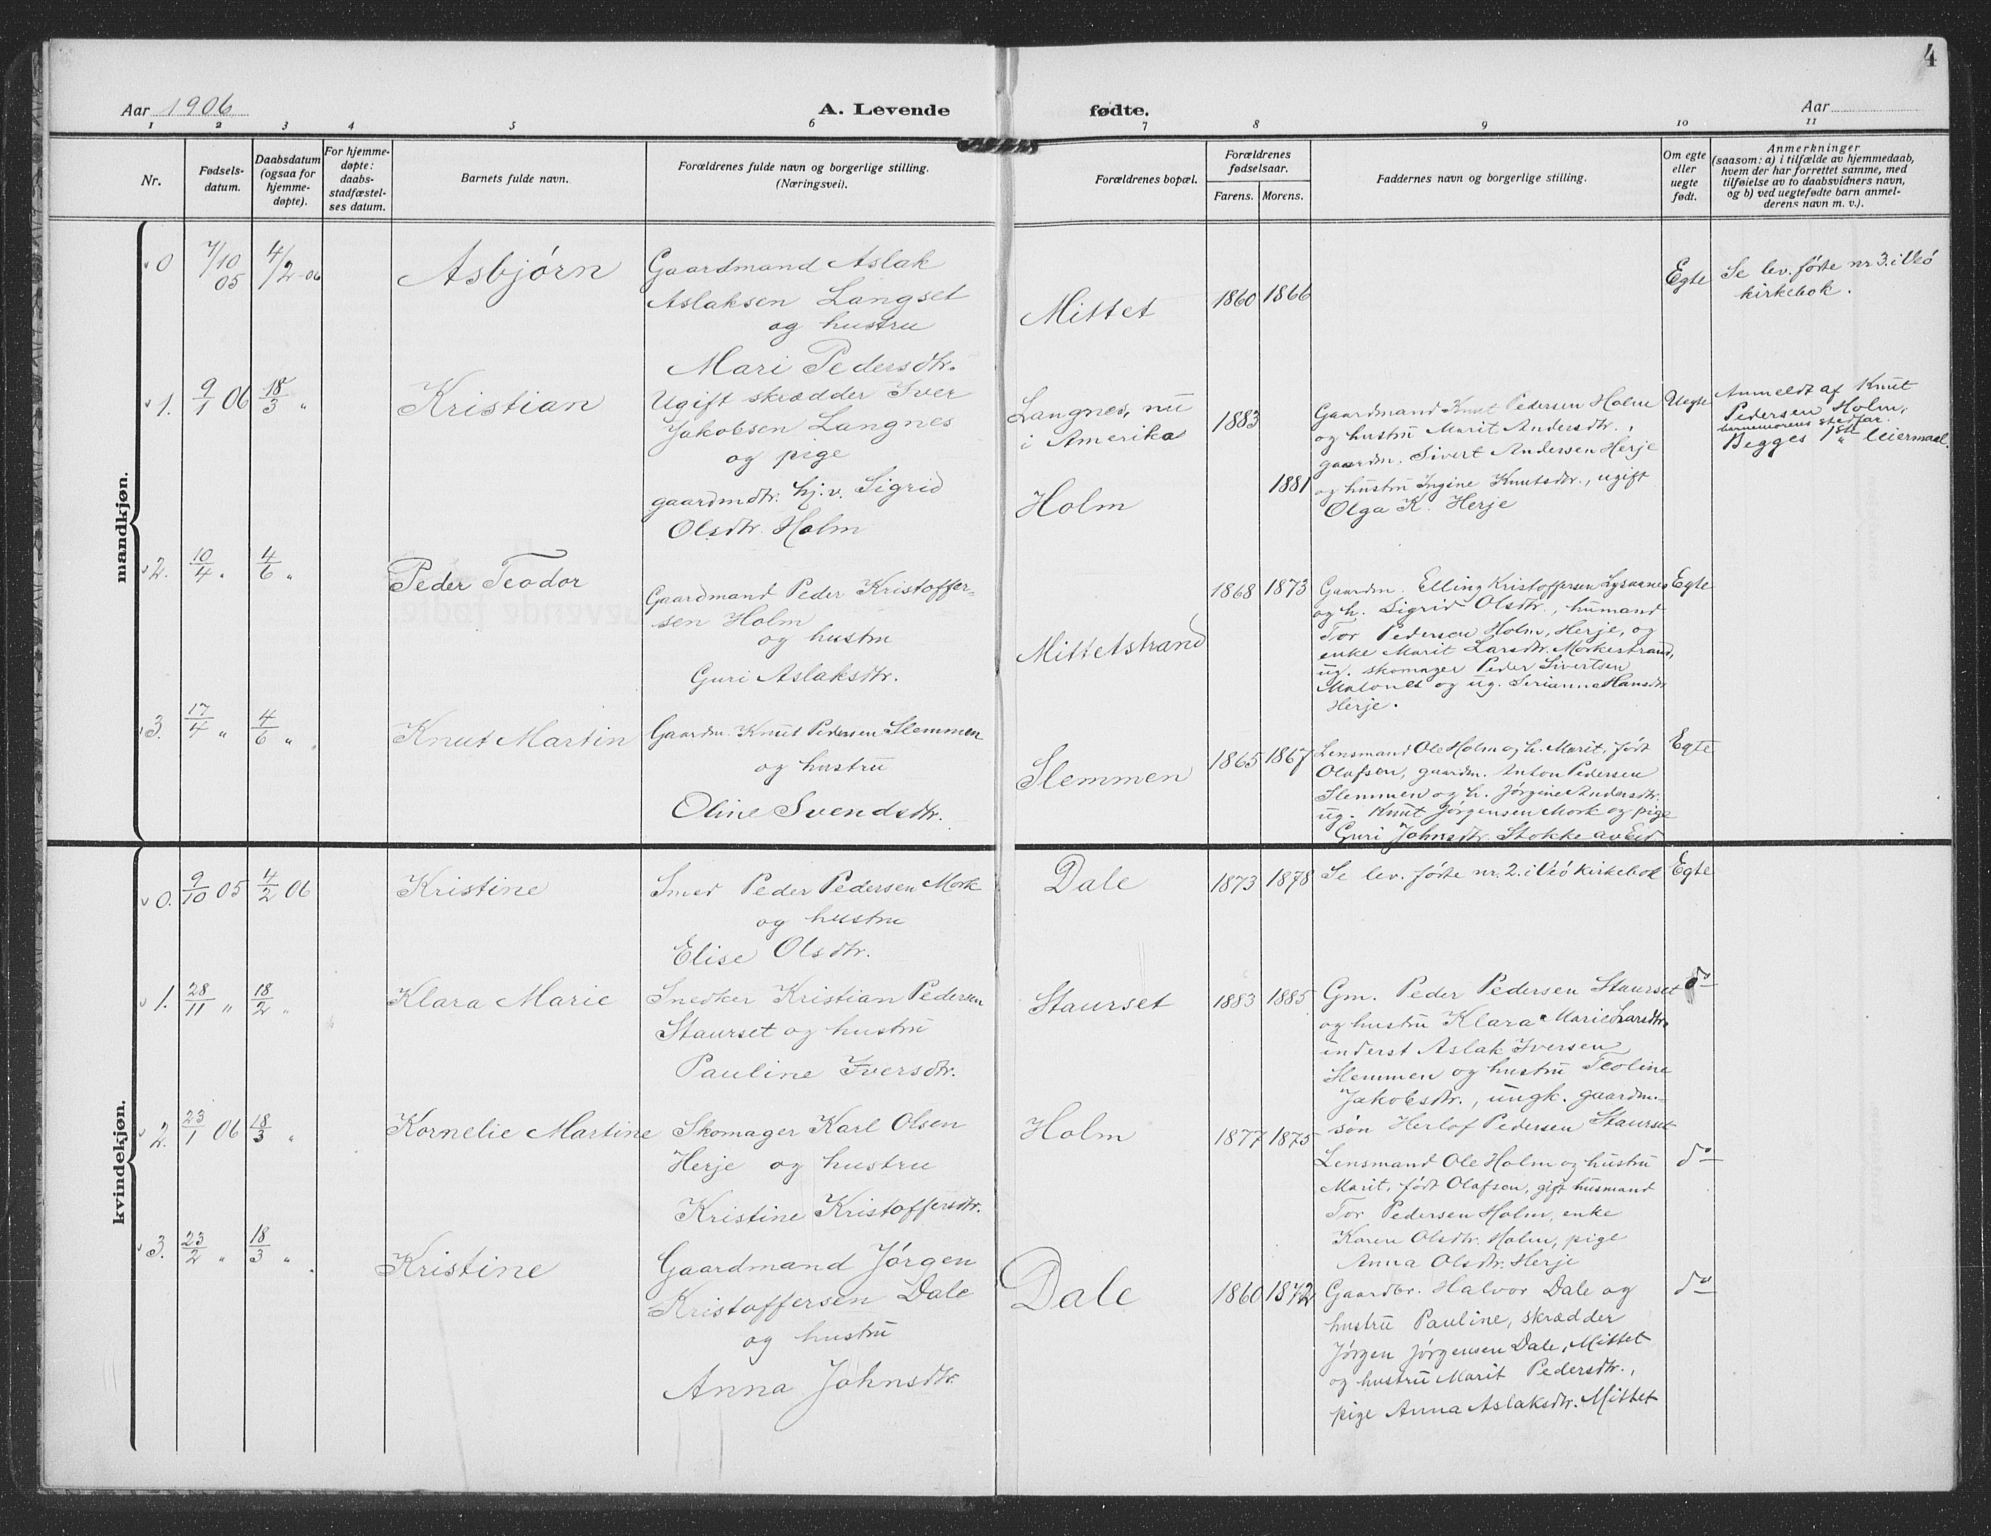 4
Aar 1906
A. Levende fødte.
Aar
1 2 3 4 5 6 7 8 9 10 11
Nr.
Fødsels-
datum.
Daabsdatum
(ogsaa for
hjemme-
døpte).
For hjemme-
døpte:
daabs-
stadfæstel-
ses datum.
Barnets fulde navn.
Forældrenes fulde navn og borgerlige stilling.
(Næringsvei).
Forældrenes bopæl.
Forældrenes
fødselsaar.
Farens. Morens.
Faddernes navn og borgerlige stilling.
Om egte
eller
uegte
født.
Anmerkninger
(saasom: a) i tilfælde av hjemmedaab,
hvem der har forrettet samme, med
tilføielse av to daabsvidners navn,
og b) ved uegtefødte barn anmel-
derens navn m. v.).
mandkjøn.
0 7/10 05 4/2-06
Asbjørn
Gaardmand Aslak
Aslaksen Langset
og hustru
Mari Pedersdtr.
Mittet
1860 1866
Egte
Se lev. fødte nr 3. i Veö
kirkebok.
1. 9/1 06 18/3 "
Kristian
Ugift skrædder Iver
Jakobsen Langnes
og pige
gaardmdtr. hj. v. Sigrid
Olsdtr. Holm
Langnes, nu
i Amerika
Holm
1883
1881
Gaardmand Knut Pedersen Holm
og hustru Marit Andersdtr.,
gaardm. Sivert Andersen Herje
og hustru Ingine Knutsdtr., ugift
Olga K. Herje
Uegte
Anmeldt af Knut
Pedersen Holm,
barnemorens stedfar.
Begges 1ste leiermaal.
2. 10/4 " 4/6 "
Peder Teodor
Gaardmand Peder Kristoffer-
sen Holm
og hustru
Guri Aslaksdtr.
Mittetstrand
1868 1873
Gaardm. Elling Kristoffersen
og h. Sigrid Olsdtr., husmand
Tor Pedersen Holm, Herje, og
enke Marit Larsdtr. Morkestrand,
ug. skomager Peder Sivertsen
Malones og ug. Serianna Hansdtr.
Herje.
Egte
3. 17/4 " 4/6 "
Knut Martin
Gaardm. Knut Pedersen Slemmen
og hustru
Oline Svendsdtr.
Slemmen
1865 1867
Lensmand Ole Holm og h. Marit, født
Olafsen, gaardm. Anton Pedersen
Slemmen og h. Jørgine Andersdtr.
ug. Knut Jørgensen Mork og pige
Guri Johnsdtr. Stokke av Eid
Egte
kvindekjøn.
0. 9/10 05 4/2 06
Kristine
Smed Peder Pedersen Mork
og hustru
Elise Olsdtr.
Dale
1873 1878
Se lev. fødte nr. 2. i Veö kirkebok
Egte
1. 28/11 " 18/2 "
Klara Marie
Snedker Kristian Pedersen
Staurset og hustru
Pauline Iversdtr.
Staurset
1883 1885
Gm. Peder Pedersen Staurset
og hustru Klara Marie Larsdtr.
inderst Aslak Iversen
Slemmen og hustru Teoline
Jakobsdtr., ungk. gaardm.-
søn Herlof Pedersen Staurset
do
2. 23/1 06 18/3 "
Kornelie Martine
Skomager Karl Olsen
Herje og hustru
Kristine Kristoffersdtr.
Holm
1877 1875
Lensmand Ole Holm og hustru
Marit, født Olafsen, gift husmand
Tor Pedersen Holm, enke
Karen Olsdtr. Holm, pige
Anna Olsdtr. Herje
do
3. 23/2 " 18/3 "
Kristine
Gaardmand Jørgen
Kristoffersen Dale
og hustru
Anna Johnsdtr.
Dale
1860 1872
Gaardbr. Halvor Dale og
hustru Pauline, skrædder
Jørgen Jørgensen Dale, Mittet
og hustru Marit Pedersdtr.,
pige Anna Aslaksdtr. Mittet
do